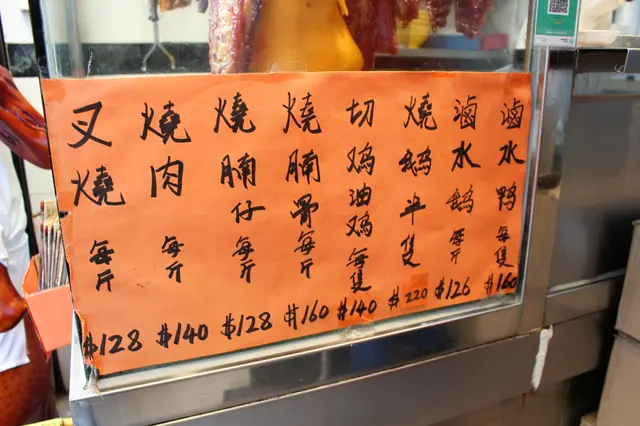 叉燒 每斤 $128
燒肉 每斤 $140
燒腩仔 每斤 $128
燒腩骨 每斤 $160
切鸡油鸡 每隻 $140
燒鵝半隻 $220
滷水鵝 每斤 $126
滷水鸭 每隻 $160